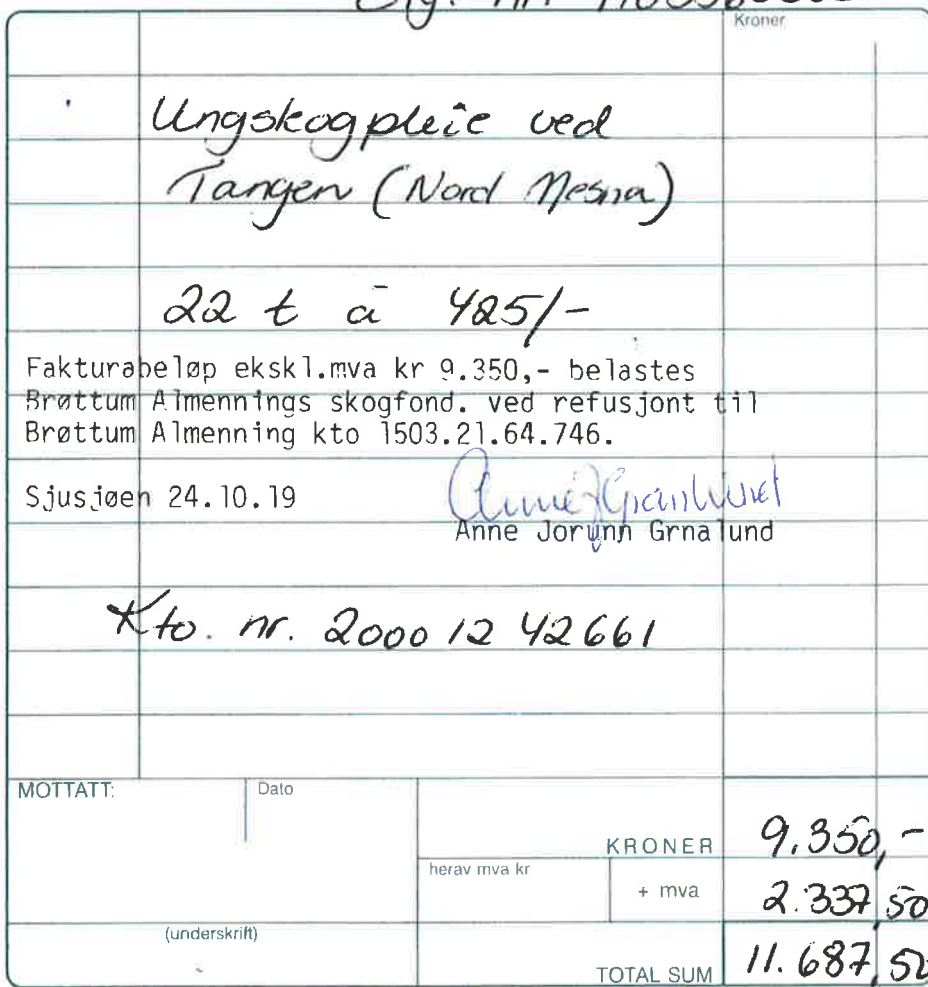 Kroner
Ungskogpleie ved
Tangen (Nord Mesna)
22 t à 425/-
Fakturabeløp ekskl.mva kr 9.350,- belastes
Brøttum Almennings skogfond. ved refusjont til
Brøttum Almenning kto 1503.21.64.746.
Sjusjøen 24.10.19
Anne Jorunn Grnalund
Kto. nr. 2000 12 42661
MOTTATT:
Dato
KRONER 9.350,-
herav mva kr
+ mva 2.337,50
(underskrift)
TOTAL SUM 11.687,50